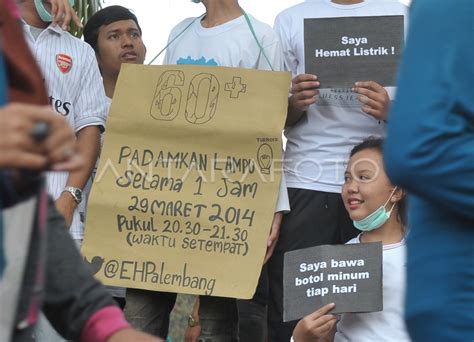 60+
PADAMKAN LAMPU
Selama 1 Jam
29 MARET 2014
Pukul 20.30-21.30
(WAKTU SETEMPAT)
@EHPalembang
Saya
Hemat Listrik !
Saya bawa
botol minum
tiap hari
Arsenal
ANTARAFOTO